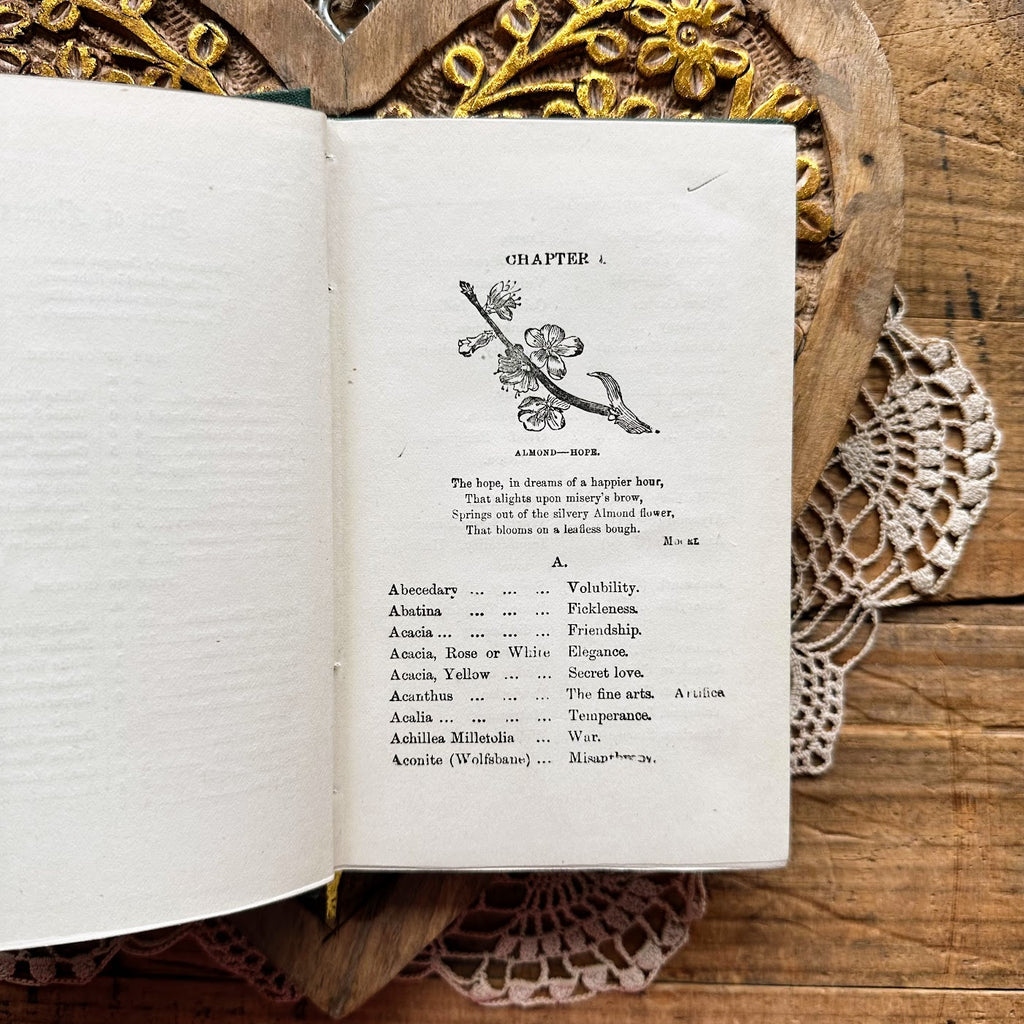 CHAPTER
ALMOND—HOPE.
The hope, in dreams of a happier hour,
That alights upon misery's brow,
Springs out of the silvery Almond flower,
That blooms on a leafless bough.
A.
Abecedary ... ... ... Volubility.
Abatina ... ... ... Fickleness.
Acacia ... ... ... ... Friendship.
Acacia, Rose or White Elegance.
Acacia, Yellow ... ... Secret love.
Acanthus ... ... ... The fine arts.
Acalia ... ... ... ... Temperance.
Achillea Milletolia ... War.
Aconite (Wolfsbane) ... Misanthropy.